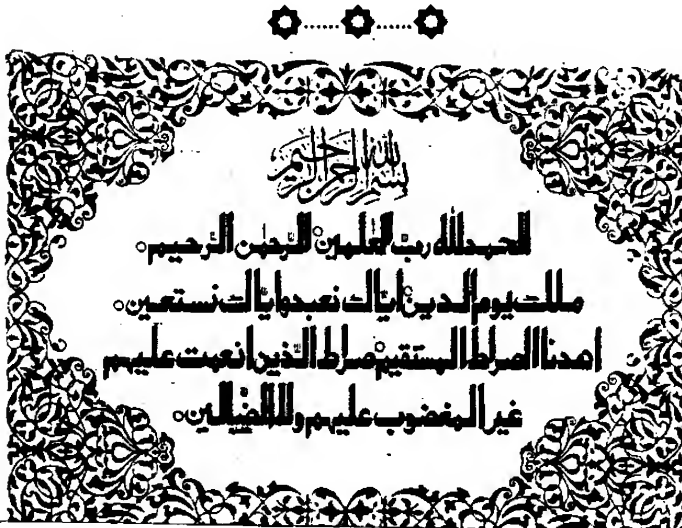 بسم الله الرحمن الرحيم
الحمد لله رب العلمين الرحمن الرحيم
ملك يوم الدين اياك نعبد واياك نستعين
اهدنا الصراط المستقيم صراط الذين انعمت عليهم
غير المغضوب عليهم ولا الضالين